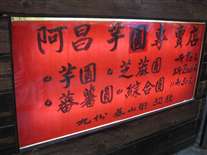 阿昌芋圓專賣店
。芋圓 。芝蔴圓
。蕃薯圓 。綜合圓
九份 基山街